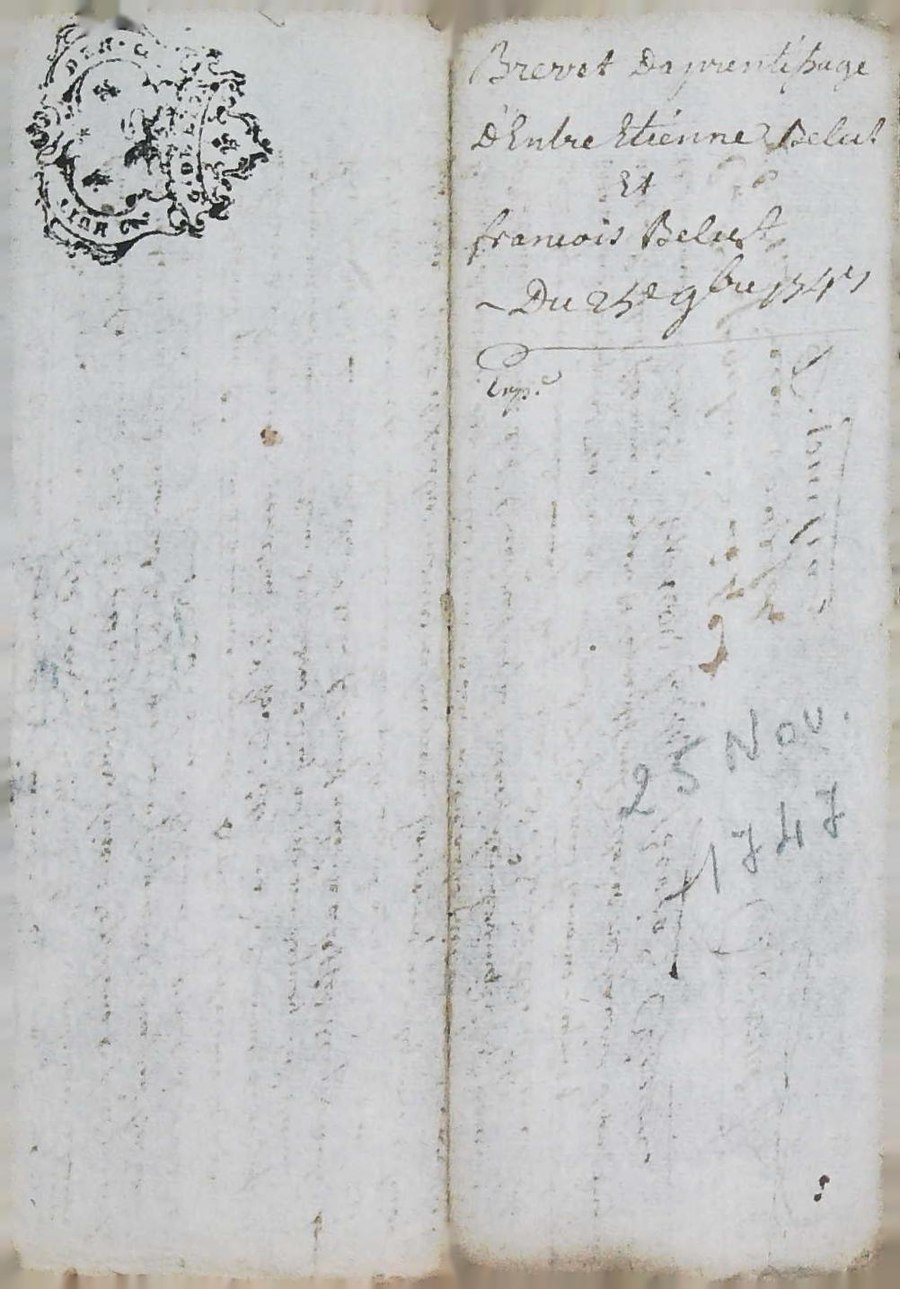 Brevet Daprentissage
D'Entre Etienne Belut
Et
francois Belut
Du 25e 9bre 1747
Exp.e
25 Nov.
1747